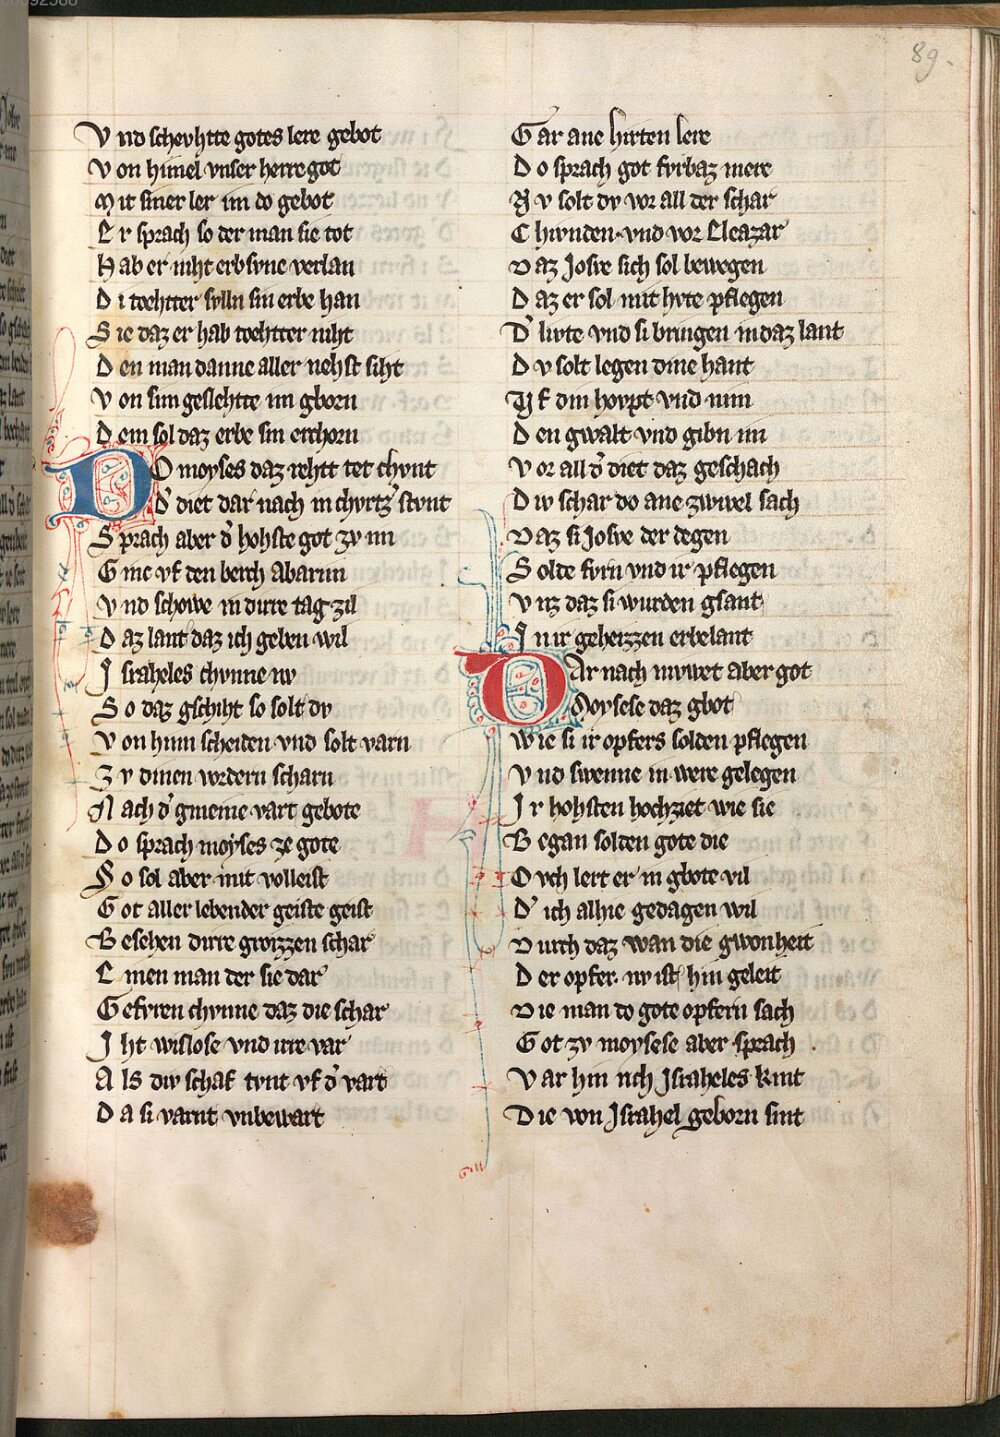 89.
Vnd schevhtte gotes lere gebot
Von himel vnser herre got
Mit siner ler im do gebot
Er sprach so der man sie tot
Hab er niht erbsvne verlan
Di toehtter svlln sin erbe han
Sie daz er hab toehtter niht
Den man danne aller nehst siht
Von sim geslehtte im gborn
Dem sol daz erbe sin erchorn
DO moyses daz rehtt tet chvnt
D' diet dar nach in chvrtz' stvnt
Sprach aber d' hohste got zv im
Ginc vf den berch Abarim
Vnd schowe in dirre tag zil
Daz lant daz ich geben wil
Israheles chvnne nv
So daz gschiht so solt dv
Von hinn scheiden vnd solt varn
Zv dinen vordern scharn
Nach d' gmeine vart gebote
Do sprach moyses ze gote
So sol aber mit volleist
Got aller lebender geiste geist
Besehen dirre groizzen schar
Einen man der sie dar
Gefvren chvnne daz die schar
Iht wislose vnd irre var
Als div schaf tvnt vf d' vart
Da si varnt vnbewart
Gar ane hirten lere
Do sprach got fvrbaz mere
Nv solt dv vor all der schar
Chvnden vnd vor Eleazar
Daz Josve sich sol bewegen
Daz er sol mit hvte pflegen
D' livte vnd si bringen in daz lant
Dv solt legen dine hant
Vf din hovpt vnd nim
Den gwalt vnd gibn im
Vor all d' diet daz geschach
Div schar do ane zwivel sach
Daz si Josve der degen
Solde fvrn vnd ir pflegen
Vnz daz si wurden gsant
In ir geheizzen erbelant
DAr nach nivwet aber got
Moysese daz gbot
Wie si ir opfers solden pflegen
Vnd swenne in were gelegen
Ir hohsten hochziet wie sie
Began solten gote die
Ovch lert er in gbote vil
D' ich alhie gedagen wil
Durch daz wan die gwonheit
Der opfer nv ist hin geleit
Die man do gote opfern sach
Got zv moysese aber sprach
Var hin nch Israheles kint
Die von Israhel geborn sint